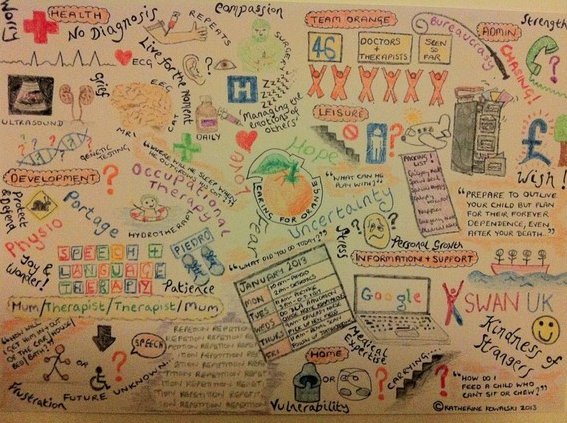 Worry
HEALTH
No Diagnosis
REPEATS
Compassion
SURGERY
ECG
Live for the Moment
Grief
EEG
ULTRASOUND
MRI
CAT
DAILY
GENETIC TESTING
H
Zzzzz
Managing the
emotions of
others
TEAM ORANGE
46
DOCTORS
+
THERAPISTS
SEEN
SO
FAR
Bureaucracy
ADMIN
Strength
CHASING!
LEISURE
£
Wish!
Love
Hope
CARING FOR ORANGE
"WHAT CAN HE
PLAY WITH?"
Uncertainty
Fear
Guess
"WHAT DID YOU DO TODAY?"
"PREPARE TO OUTLIVE
YOUR CHILD BUT PLAN
FOR THEIR FOREVER
DEPENDENCE, EVEN
AFTER YOUR DEATH."
DEVELOPMENT
Protect
& Defend
Portage
Occupational
Therapy
HYDROTHERAPY
Physio
Joy &
Wonder!
SPEECH +
LANGUAGE
THERAPY
PIEDRO
Patience
Mum/Therapist/Therapist/Mum
JANUARY 2013
MON
TUES
WEDS
THURS
FRI
Personal Growth
INFORMATION + SUPPORT
Google
SWAN UK
Kindness of
Strangers
Medical
Expertise
SPEECH
OR
Frustration
FUTURE UNKNOWN!
REPETITION REPETITION
HOME
OR
CARRYING...
Vulnerability
"HOW DO I
FEED A CHILD WHO
CAN'T SIT OR CHEW?"
© KATHERINE KOWALSKI 2013